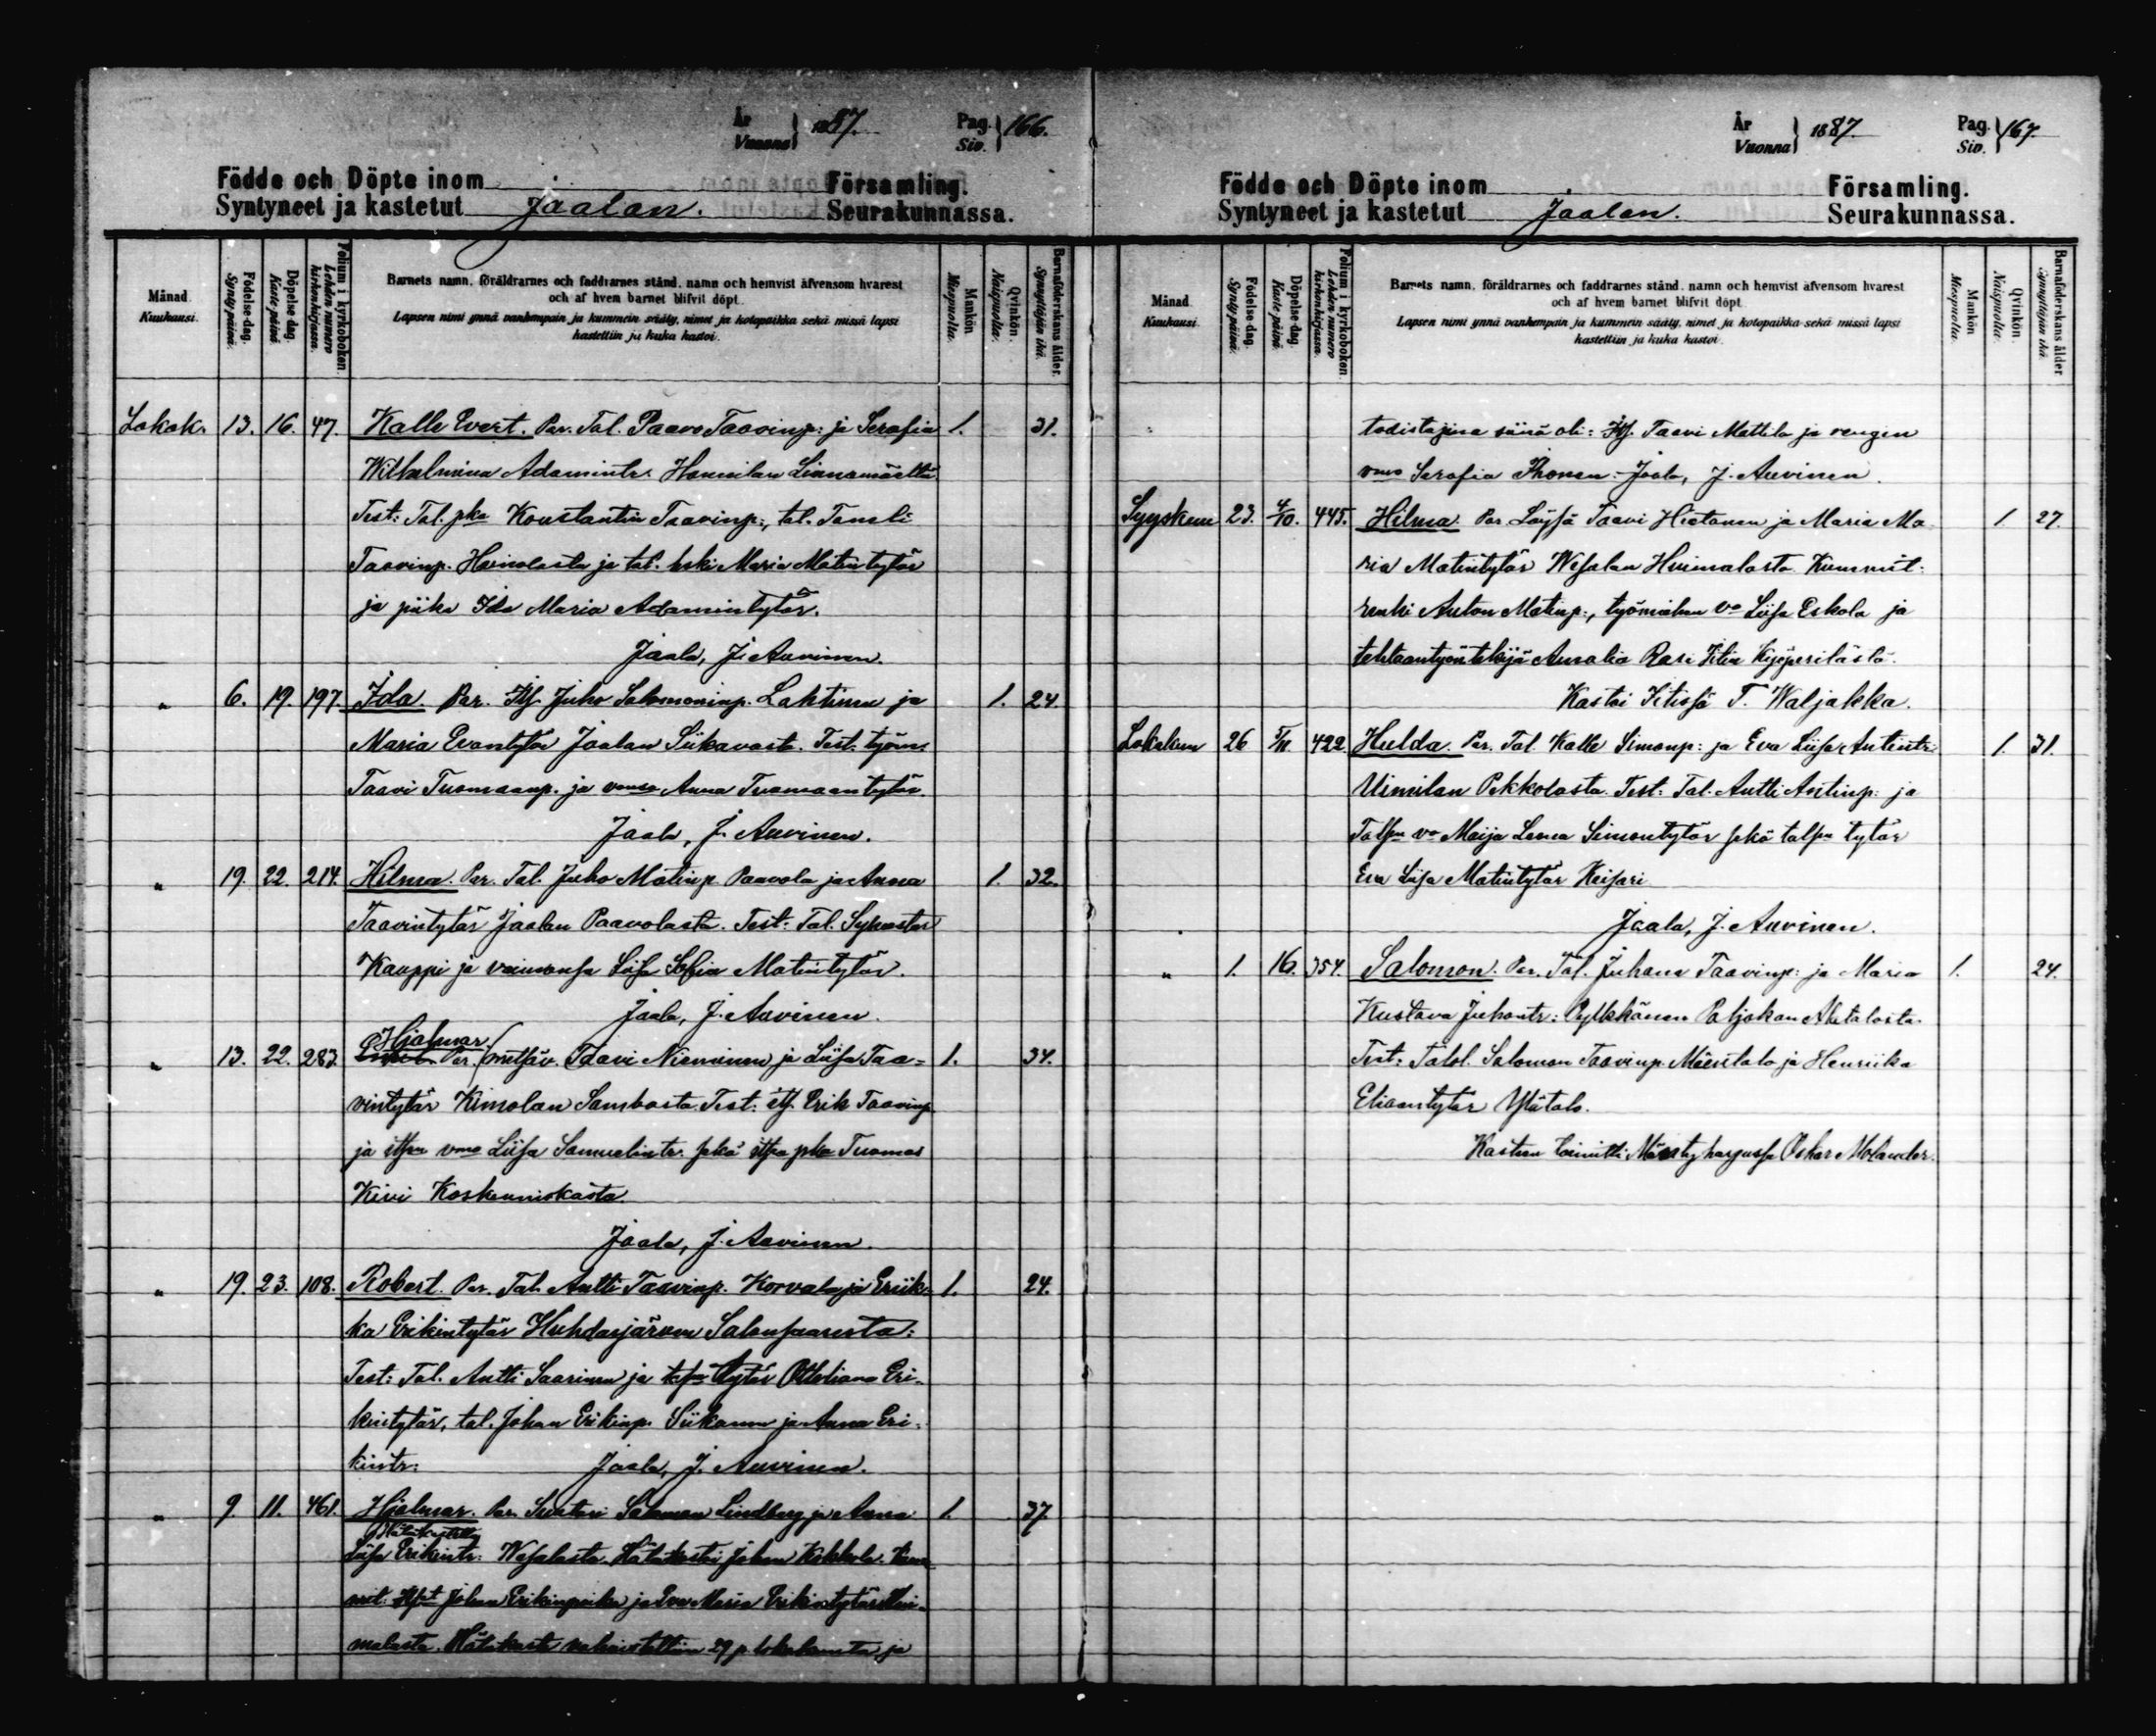 År
Vuonna } 1887. Pag.
Siv. } 166.
Födde och Döpte inom Församling.
Syntyneet ja kastetut Jaalan. Seurakunnassa.
Månad.
Kuukausi.
Födelse-dag.
Synty päivä.
Döpelse dag.
Kaste päivä.
Folium i kyrkoboken.
Lehden numero
kirkonkirjassa.
Barnets namn, föräldrarnes och faddrarnes stånd, namn och hemvist äfvensom hvarest
och af hvem barnet blifvit döpt.
Lapsen nimi ynnä vanhempain ja kummein sääty, nimet ja kotopaikka sekä missä lapsi
kastettiin ja kuka kastoi.
Mankön
Miespuolta.
Qvinkön.
Naispuolta.
Barnaföderskans ålder.
Synnyttäjän ikä.
Lokak. 13. 16. 47. Kalle Evert. Par. Tal. Paavo Taavinp: ja Serafia 1. 31.
Wilhelmina Adamintr. Hannilan Linnamäeltä.
Test: Tal. pka Konstantin Taavinp:, tal. Taneli
Taavinp. Heinolasta ja tal. leski Maria Matintytär
ja piika Ida Maria Adamintytär.
Jaala, J. Auvinen.
" 6. 19. 197. Ida. Par. Itf. Juho Salomoninp. Lahtinen ja 1. 24
Maria Evantytär Jaalan Siikavasta. Test. työm.
Taavi Tuomaanp. ja vmonsa Anna Tuomaantytär.
Jaala, J. Auvinen.
" 19. 22. 214. Hilma. Par. Tal. Juho Matinp. Paavola ja Anna 1. 32.
Taavintytär Jaalan Paavolasta. Test: Tal. Sylvester
Kauppi ja vaimonsa Liisa Sofia Matintytär.
Jaala, J. Auvinen.
Hjalmar
" 13. 22. 283. Par. metsäv. Taavi Nieminen ja Liisa Taa= 1. 34.
vintytär Kimolan Sambasta. Test: itf. Erik Taavinp
ja itfsn vmo Liisa Samuelintr. sekä itfsn pka Tuomas
Kivi Koskenniskasta.
Jaala, J. Auvinen.
" 19. 23. 108. Robert. Par. Tal. Antti Taavinp. Korvala ja Eriik= 1. 24.
ka Erikintytär Huhdasjärven Salonsaaresta:
Test: Tal. Antti Saarinen ja tytär Ottoliana Eri-
kintytär, tal. Johan Erikinp. Siikanen ja Anna Eri-
kintr: Jaala, J. Auvinen.
" 9. 11. 461. Hjalmar. Par. Suutari Salomon Lindberg ja Anna 1. 37
Liisa Erikintr: Wesalasta. Hätäkastoi Johan Kekkola. Kum
mit: Johan Erikinpoika ja Eva Maria Erikintytär Hui-
malasta. Hätäkaste vahvistettiin 29 p. lokakuuta ja
År
Vuonna } 1887. Pag.
Siv. } 167.
Födde och Döpte inom Församling.
Syntyneet ja kastetut Jaalan. Seurakunnassa.
Månad.
Kuukausi.
Födelse-dag.
Synty päivä.
Döpelse-dag.
Kaste päivä.
Folium i kyrkoboken.
Lehden numero
kirkonkirjassa.
Barnets namn, föräldrarnes och faddrarnes stånd, namn och hemvist äfvensom hvarest
och af hvem barnet blifvit döpt.
Lapsen nimi ynnä vanhempain ja kummein sääty, nimet ja kotopaikka sekä missä lapsi
kastettiin ja kuka kastoi.
Mankön
Miespuolta.
Qvinkön.
Naispuolta.
Barnaföderskans ålder.
Synnyttäjän ikä.
todistajina siinä oli: Itf. Taavi Mattila ja rengin
vmo Serafia Ihonen. Jaala, J. Auvinen.
Syyskuu 23. 4/10. 445. Hilma. Par. Löysä Taavi Hietanen ja Maria Ma- 1. 27.
ria Matintytär Wesalan Huimalasta. Kummit:
renki Anton Matinp:, työmiehen vo Liisa Eskola ja
tehtaantyöntekijä Amalia Rasi Iitin Kyöperilästä.
Kastoi Iitissä T. Waljakka.
Lokakuu 26 5/11. 422. Hulda. Par. Tal. Kalle Simonp: ja Eva Liisa Antintr: 1. 31.
Uimilan Pekkolasta. Test: Tal. Antti Antinp: ja
Talsn vo Maija Leena Simontytär sekä talsn tytär
Eva Liisa Matintytär Keisari
Jaala, J. Auvinen.
" 1. 16. 354. Salomon. Par. Tal. Juhana Taavinp: ja Maria 1. 24.
Kustava Juhontr: Pylkkänen Paljakan Alatalosta.
Test: Talol. Salomon Taavinp. Mäentalo ja Henriika
Eliaantytär Ylätalo.
Kasteen toimitti Mäntyharjussa Oskar Molander.